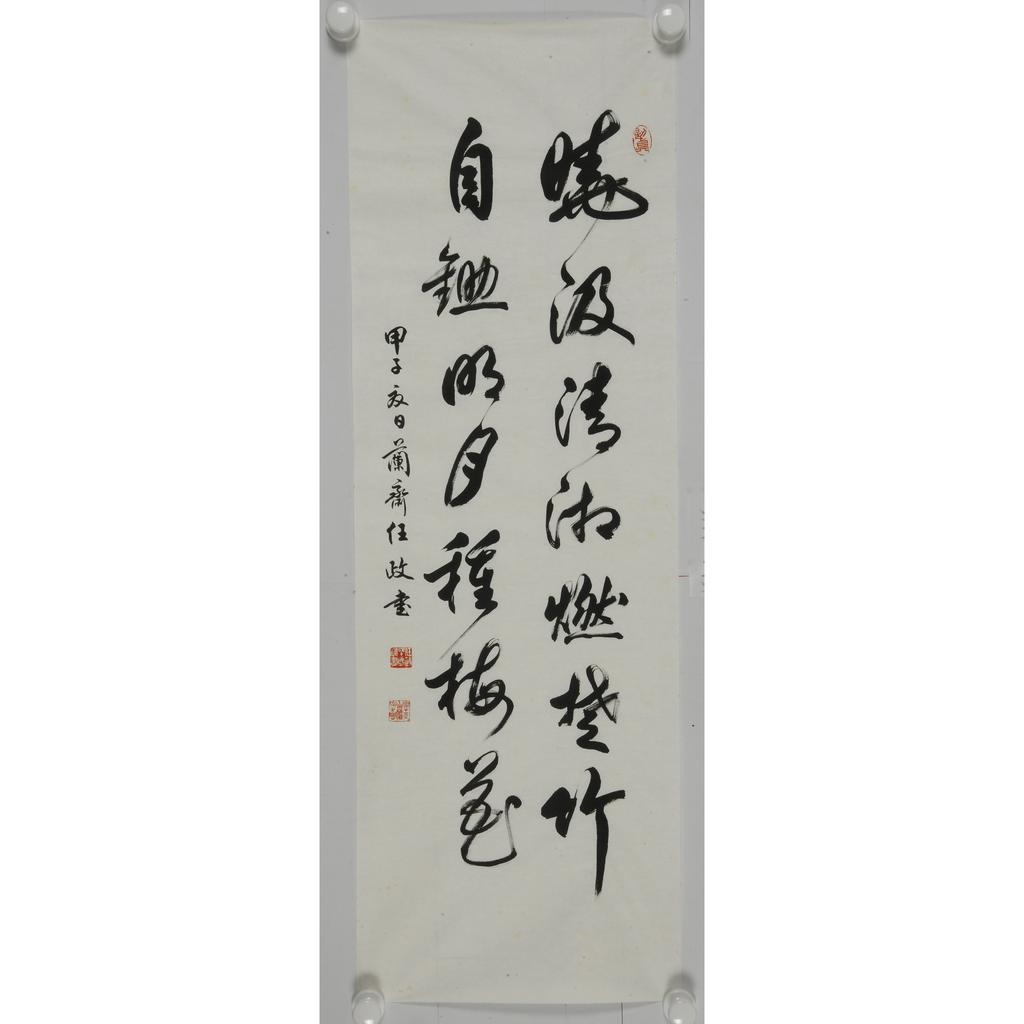 曉汲清湘燃楚竹
自鋤明月種梅花
甲子夏日蘭齋任政書